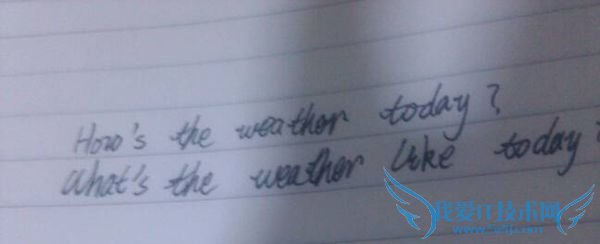 How's the weather today?
What's the weather like today?
我爱IT技术网